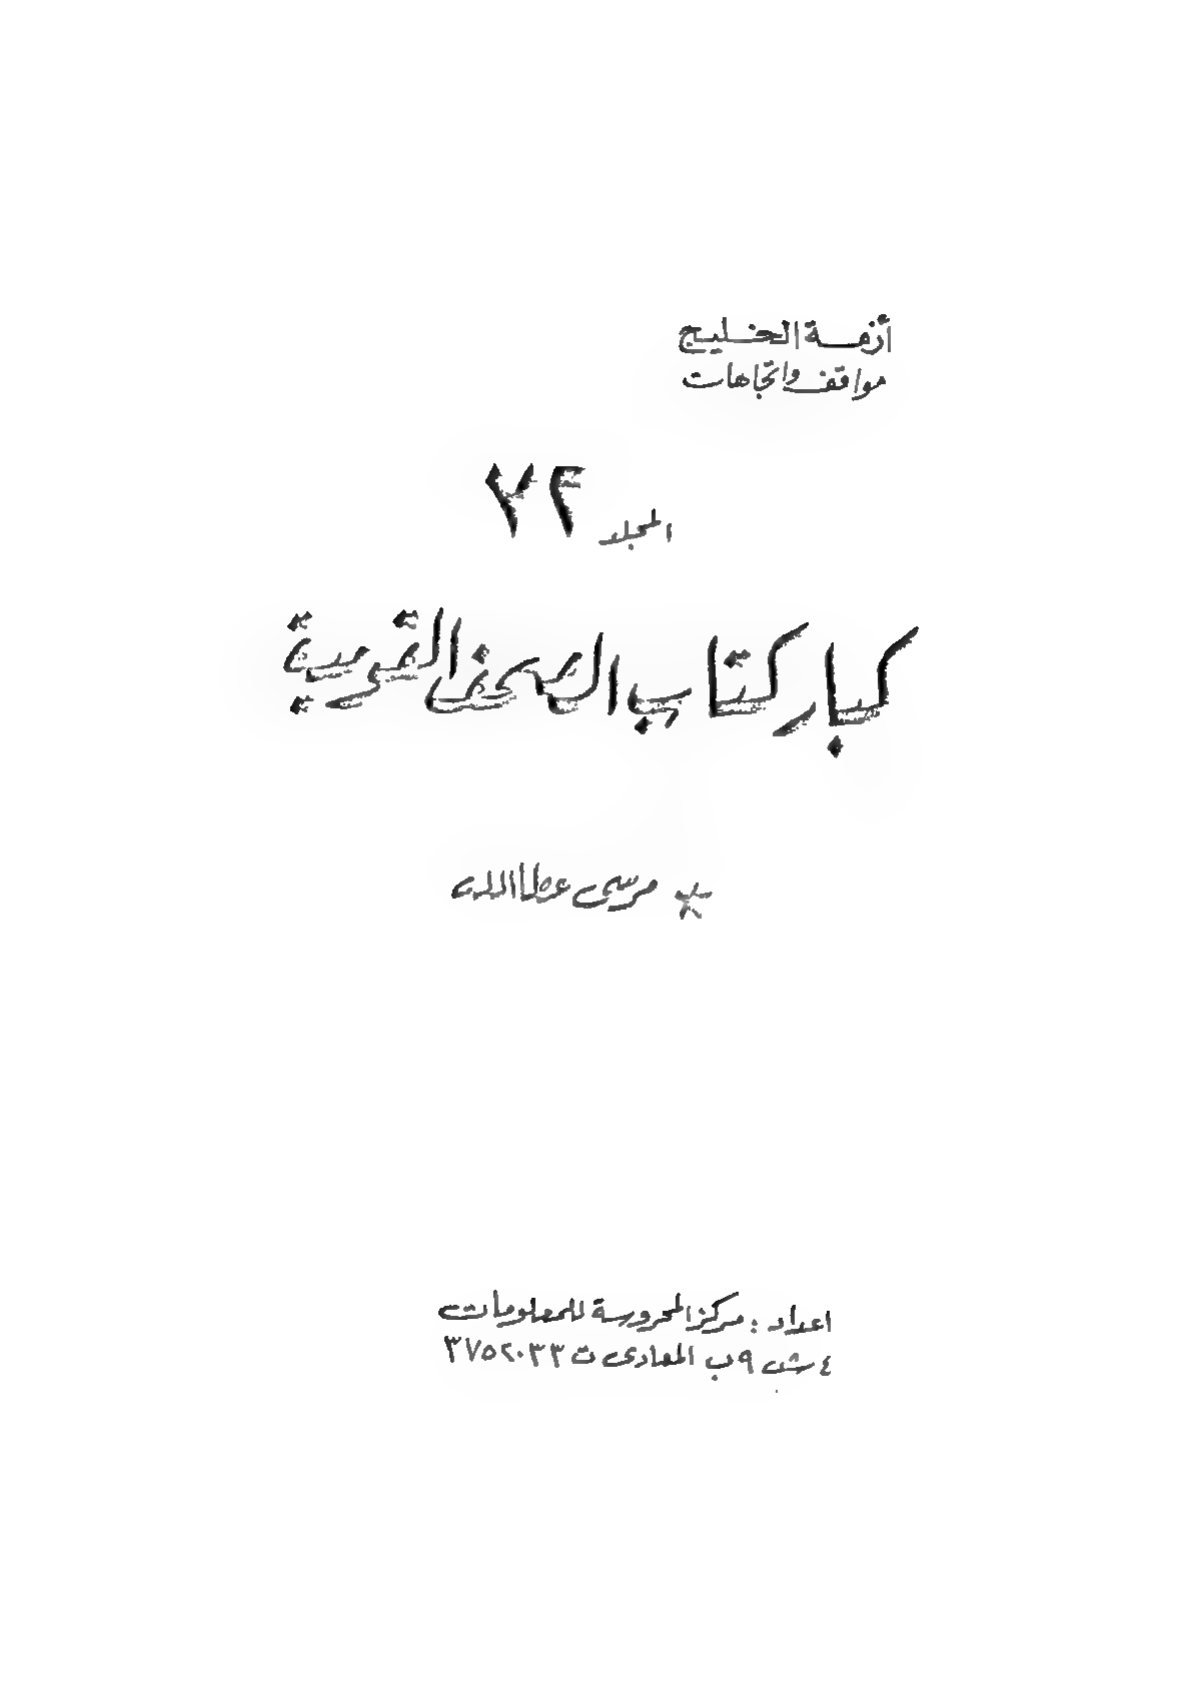 أزمة الخليج
مواقف واتجاهات
المجلد ٧٢
كبار كتاب الصحف القومية
* مرسى عطا الله
اعداد : مركز المحروسة للمعلومات
٤ ش ٩ب المعادى ت ٣٧٥٢٠٣٣